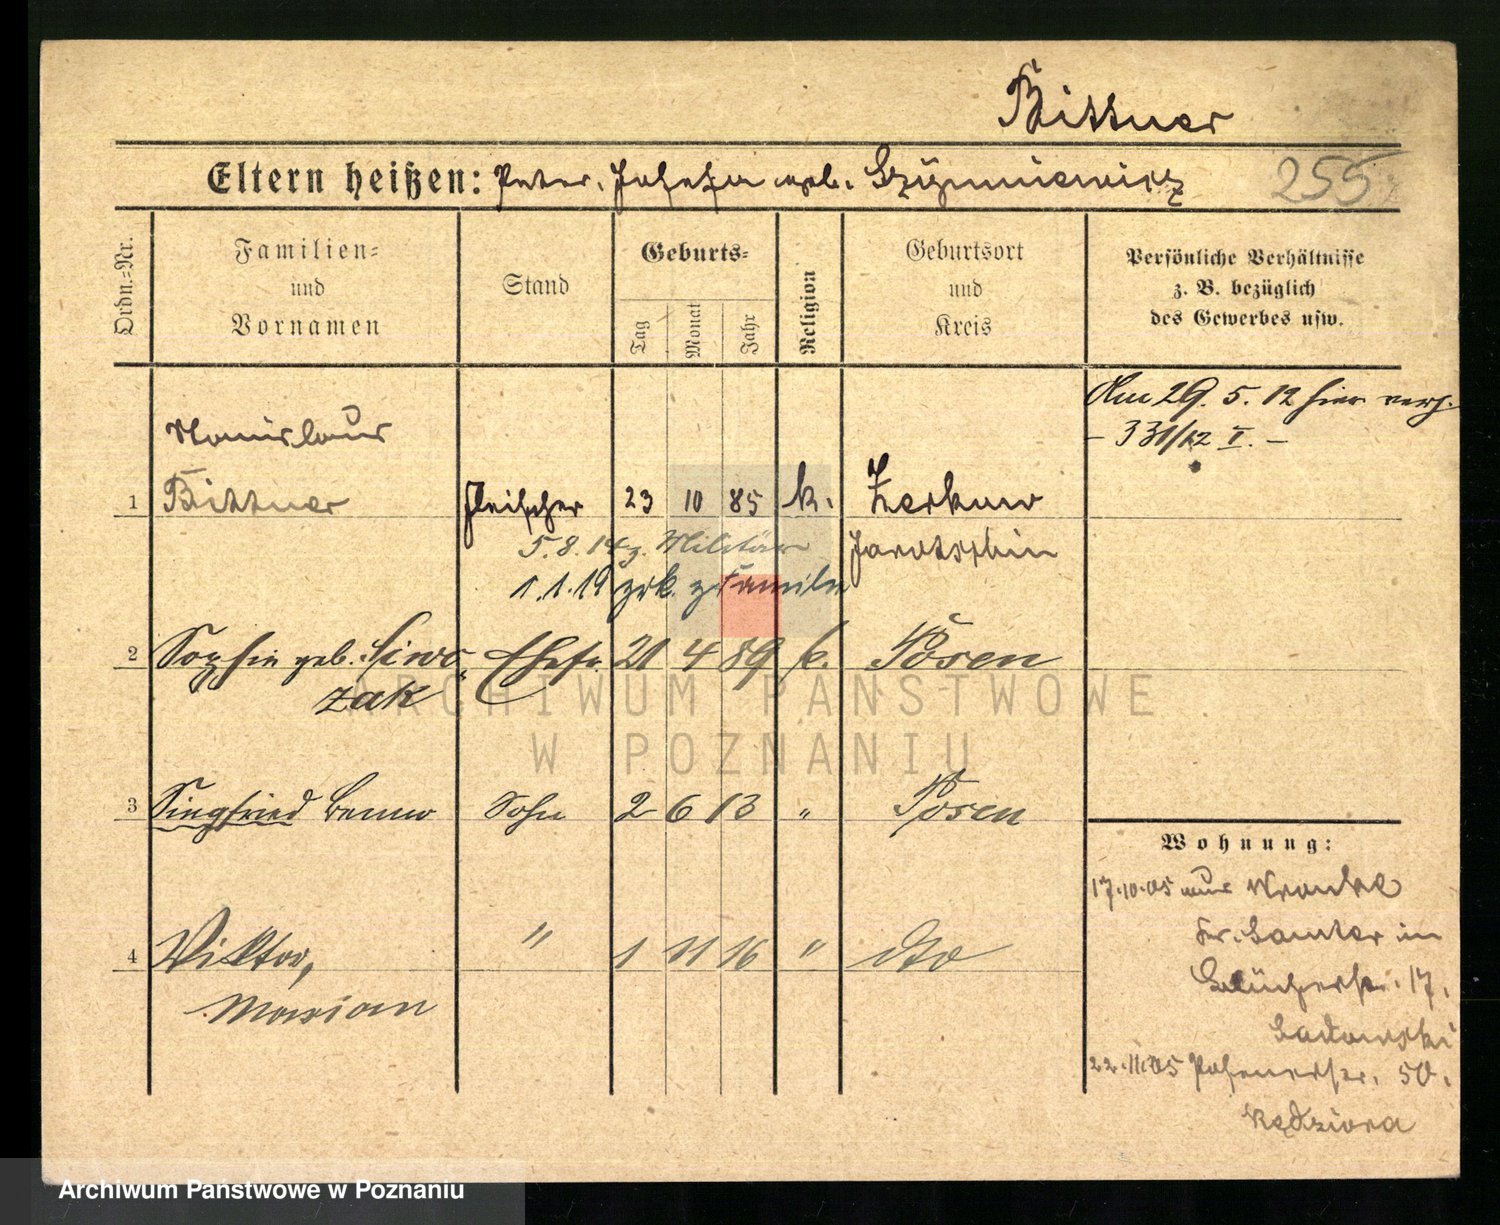 Bittner
Eltern heißen: Peter, Josefa geb. Szyjmniewicz
255
Ordn.=Nr.
Familien=
und
Vornamen
Stand
Geburts=
Tag
Monat
Jahr
Religion
Geburtsort
und
Kreis
Persönliche Verhältnisse
z. B. bezüglich
des Gewerbes usw.
Am 29. 5. 12 hier verh.
– 331/12 I. –
Stanislaus
1 Bittner Fleischer 23 10 85 k. Zerkow
5.8.14 z. Militär Jarotschin
1.1.19 zrk. z Familie
2 Sophie geb. Siwo- Ehefr. 21 4 89 k. Posen
zak
3 Siegfried Benno Sohn 2 6 13 " Posen
Wohnung:
17.10.05 aus Wronke
Kr. Samter in
Blücherstr. 17.
Sadowski
4 Viktor, " 1 11 16 " dto
Marian
22.11.05 Posenerstr. 50.
Kędziora
ARCHIWUM PAŃSTWOWE
W POZNANIU
Archiwum Państwowe w Poznaniu